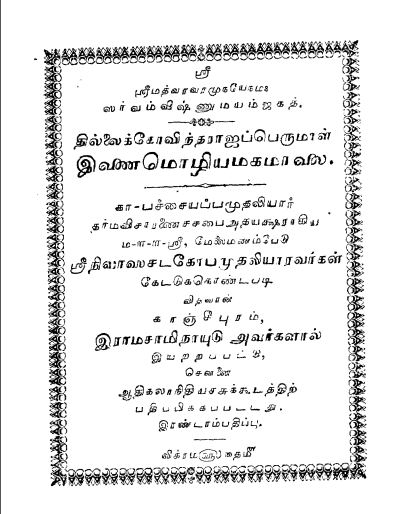 ஸ்ரீ
ஸ்ரீமதேவரவரமுநயேநமஃ
ஸர்வம்விஷ்ணுமயம்ஜகத்.
தில்லைக்கோவிந்தராஜப்பெருமாள்
இவண மொழியமகமாலை.
கா-பச்சையப்பமுதலியார்
தர்மவிசாரணைச்சபை அத்யக்ஷராகிய
ம-௱-௱-ஸ்ரீ, மேலைமணம்பேடு
ஸ்ரீநிவாஸசடகோபமுதலியாரவர்கள்
கேட்டுக்கொண்டபடி
வித்வான்
காஞ்சீபுரம்,
இராமசாமிநாயுடு அவர்களால்
இயற்றப்பட்டு,
சென்னை
ஆதிகலாநிதியச்சுக்கூடத்திற்
பதிப்பிக்கப்பட்டது.
இரண்டாம்பதிப்பு.
விக்ரம தைமீ